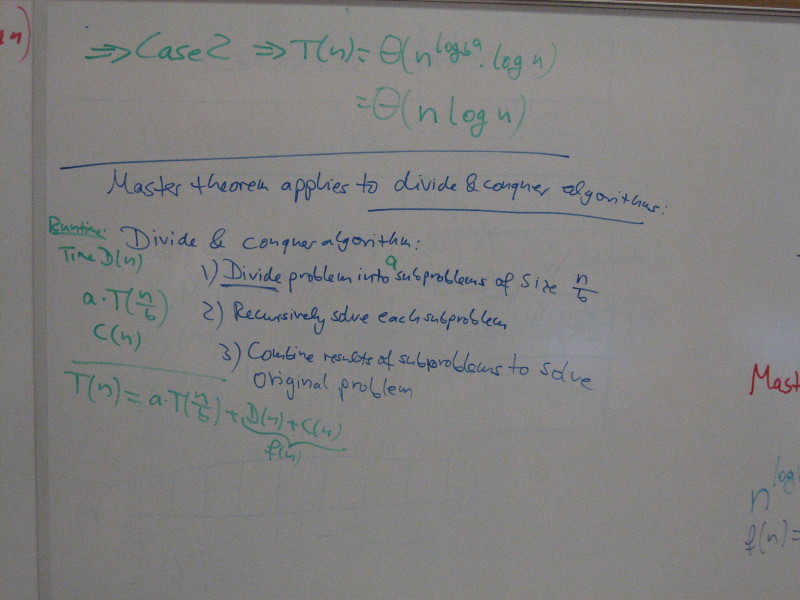 ⇒ Case 2 ⇒ T(n) = Θ(n^log_b a · log n)
= Θ(n log n)
Master theorem applies to divide & conquer algorithms:
Runtime: Divide & conquer algorithm:
Time D(n) 1) Divide problem into a subproblems of size n/b
a·T(n/b) 2) Recursively solve each subproblem
C(n) 3) Combine results of subproblems to solve
original problem
T(n) = a·T(n/b) + D(n) + C(n)
f(n)
Mast
n^log
f(n) =